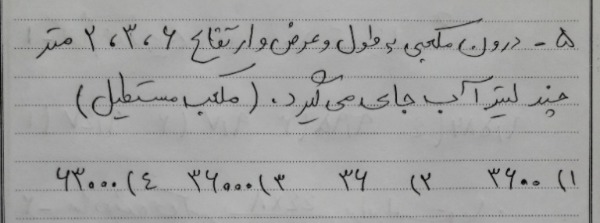 ۵ - درون مکعبی به طول و عرض و ارتفاع ۶ ، ۳ ، ۲ متر
چند لیتر آب جای می گیرد . ( مکعب مستطیل )
۱) ۳۶۰۰ ۲) ۳۶ ۳) ۳۶۰۰۰ ۴) ۶۳۰۰۰